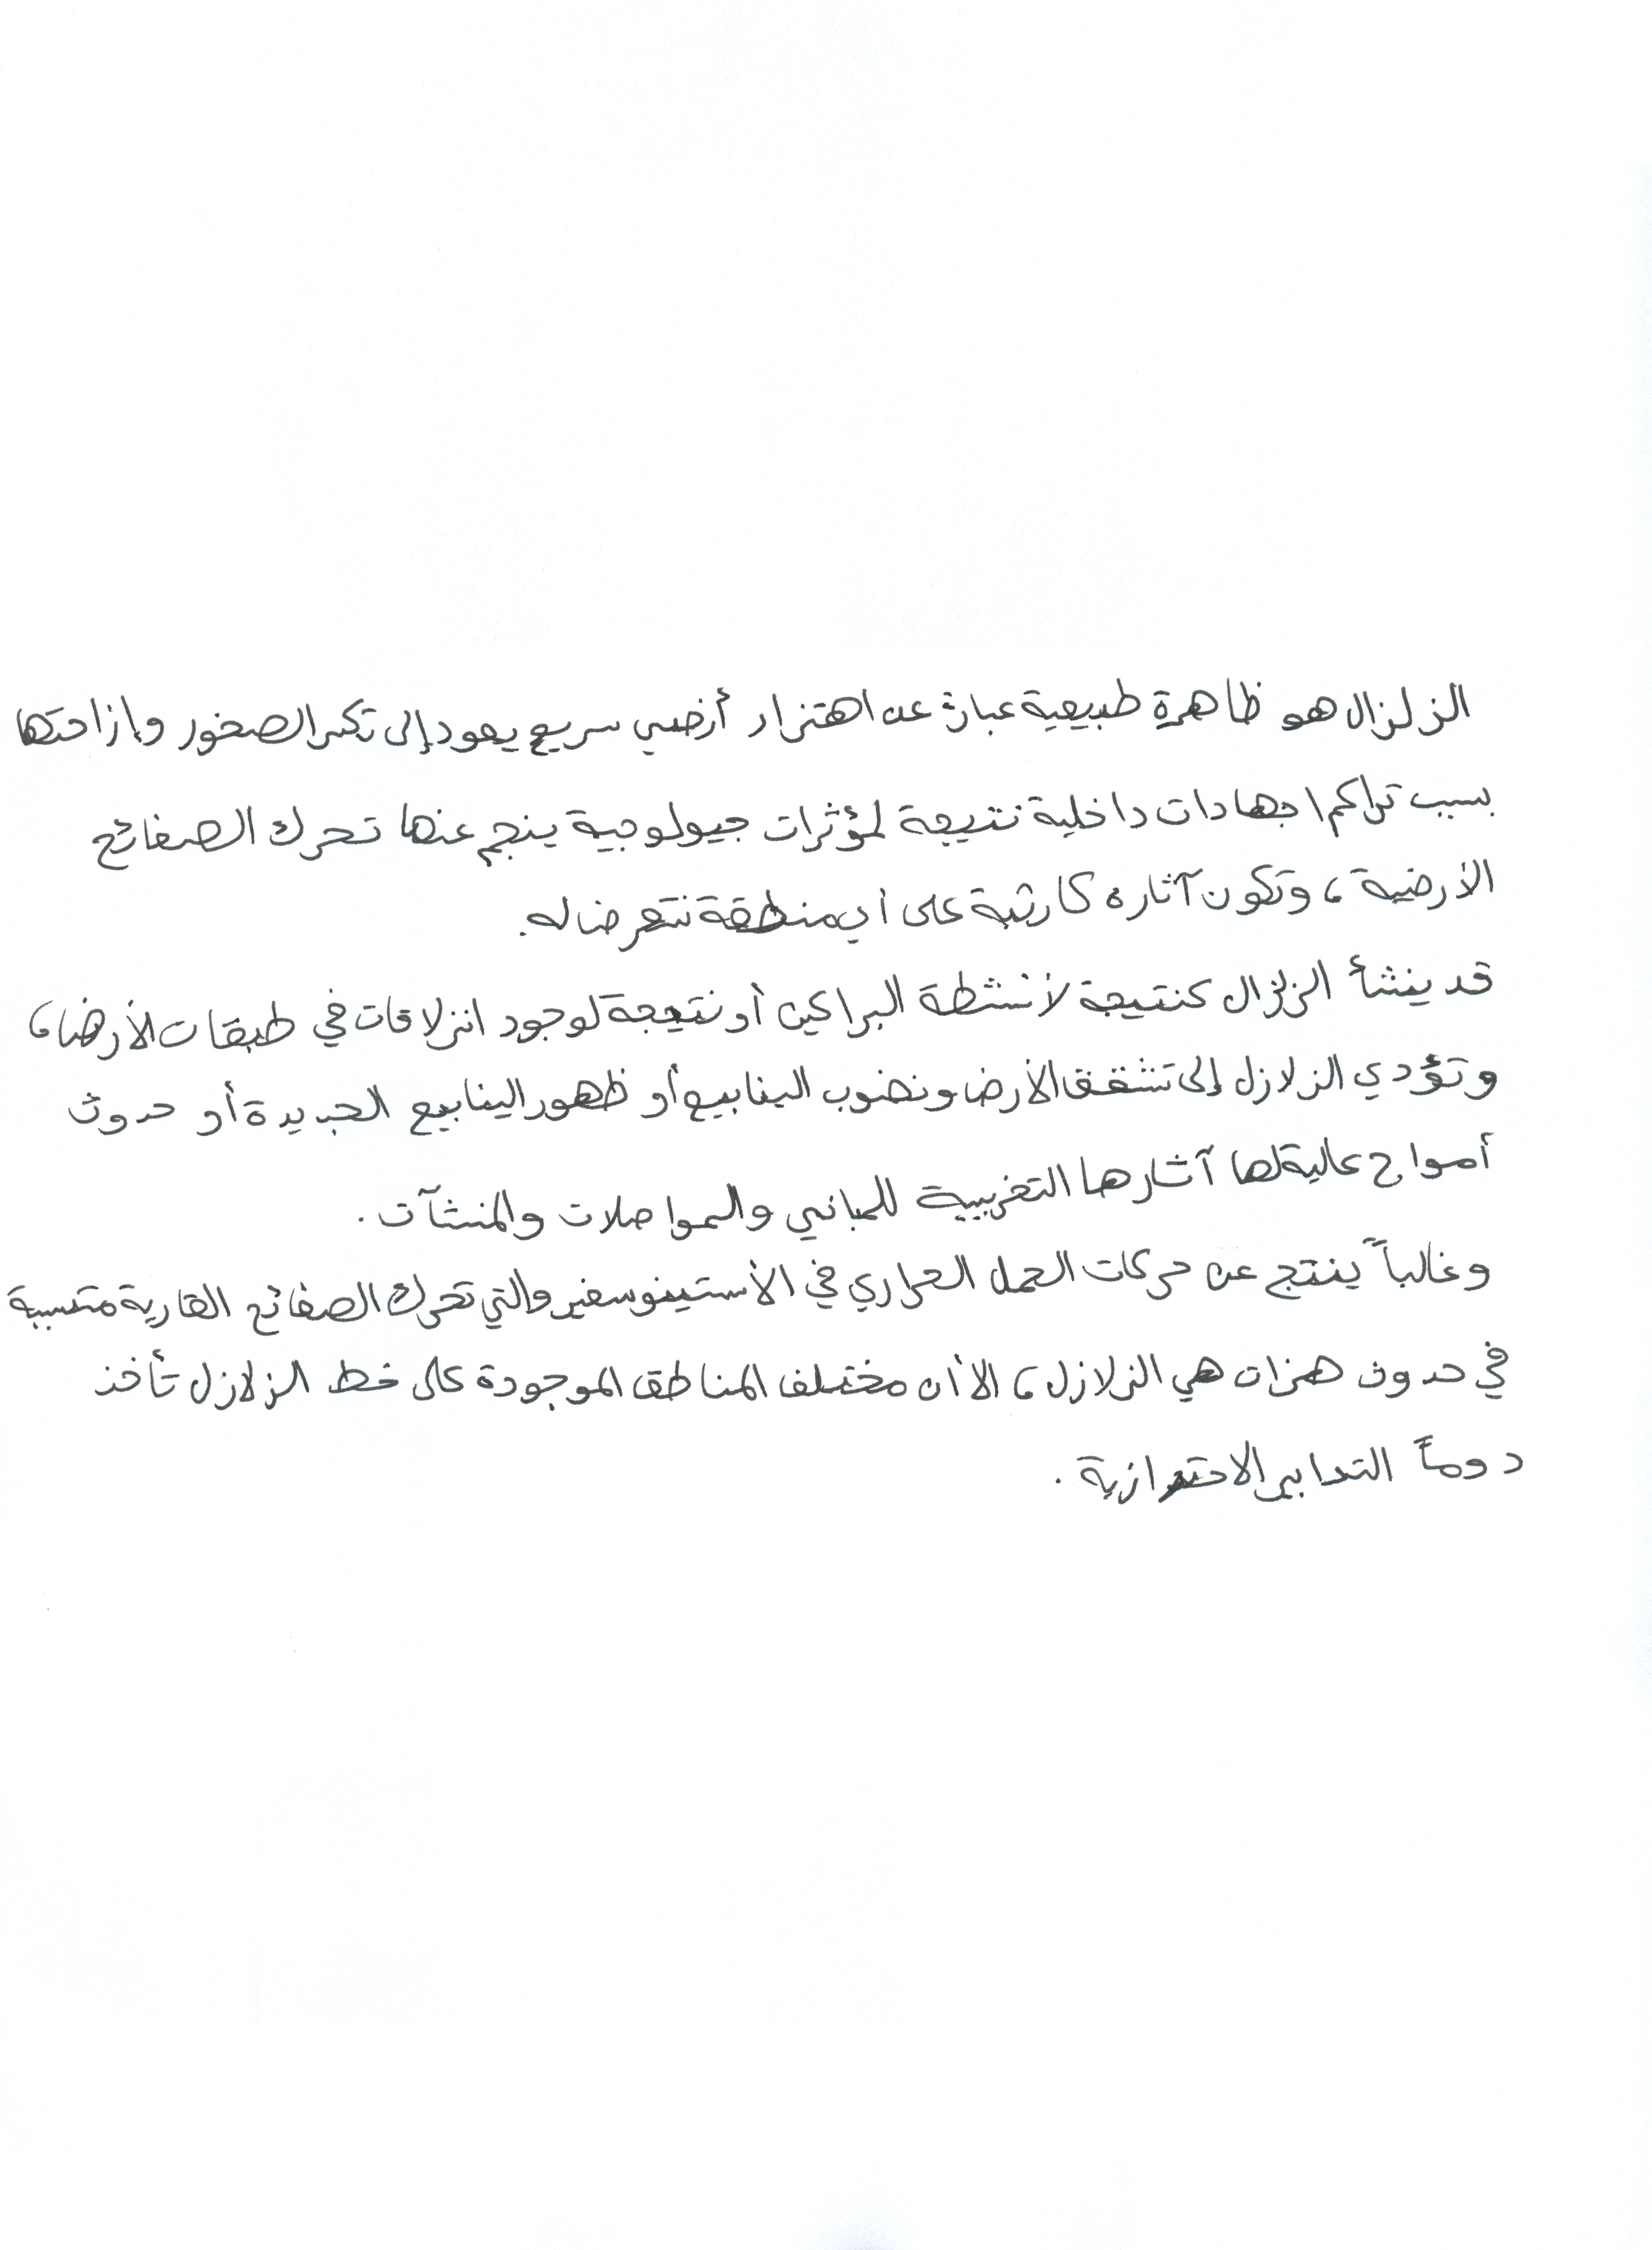 الزلزال هو ظاهرة طبيعية عبارة عن اهتزار أرضي سريع يعود إلى تكسر الصخور وإزاحتها
بسبب تراكم اجهادات داخلية نتيجة لمؤثرات جيولوجية ينجم عنها تحرك الصفائح
الأرضية ، وتكون آثاره كارثية على أي منطقة تتعرض له.
قد ينشأ الزلزال كنتيجة لأنشطة البراكين أو نتيجة لوجود انزلاقات في طبقات الأرض ،
وتؤدي الزلازل إلى تشقق الأرض ونضوب الينابيع أو ظهور الينابيع الجديدة أو حدوث
أمواج عالية لها آثارها التخريبية للمباني والمواصلات والمنشآت .
وغالباً ينتج عن حركات الحمل الحراري في الأستينوسفير والتي تحرك الصفائح القارية متسببة
في حدوث هزات هي الزلازل ، الا أن مختلف المناطق الموجودة على خط الزلازل تأخذ
دوماً التدابير الاحترازية .